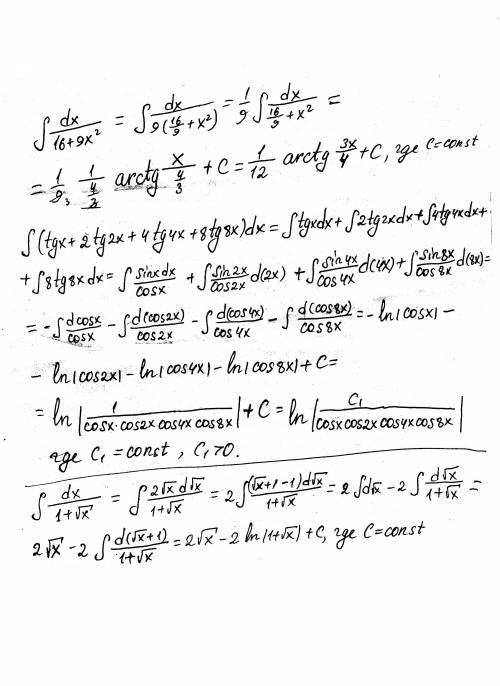 ∫ dx/(16+9x²) = ∫ dx/(9(16/9+x²)) = 1/9 ∫ dx/(16/9+x²) =
= 1/9 · 1/(4/3) arctg x/(4/3) + C = 1/12 arctg 3x/4 + C, где C=const
∫(tgx+2tg2x+4tg4x+8tg8x)dx = ∫tgxdx+∫2tg2xdx+∫4tg4xdx+
+∫8tg8xdx = ∫ sinxdx/cosx + ∫ sin2x/cos2x d(2x) + ∫ sin4x/cos4x d(4x) + ∫ sin8x/cos8x d(8x) =
= -∫ dcosx/cosx - ∫ d(cos2x)/cos2x - ∫ d(cos4x)/cos4x - ∫ d(cos8x)/cos8x = -ln|cosx| -
- ln|cos2x| - ln|cos4x| - ln|cos8x| + C =
= ln |1/(cosx·cos2x cos4x cos8x)| + C = ln |C₁/(cosxcos2xcos4xcos8x)|
где C₁=const, C₁>0.
∫ dx/(1+√x) = ∫ 2√x d√x/(1+√x) = 2∫ (√x+1-1)d√x/(1+√x) = 2∫d√x - 2∫ d√x/(1+√x) =
2√x - 2∫ d(√x+1)/(1+√x) = 2√x - 2ln(1+√x) + C, где C=const